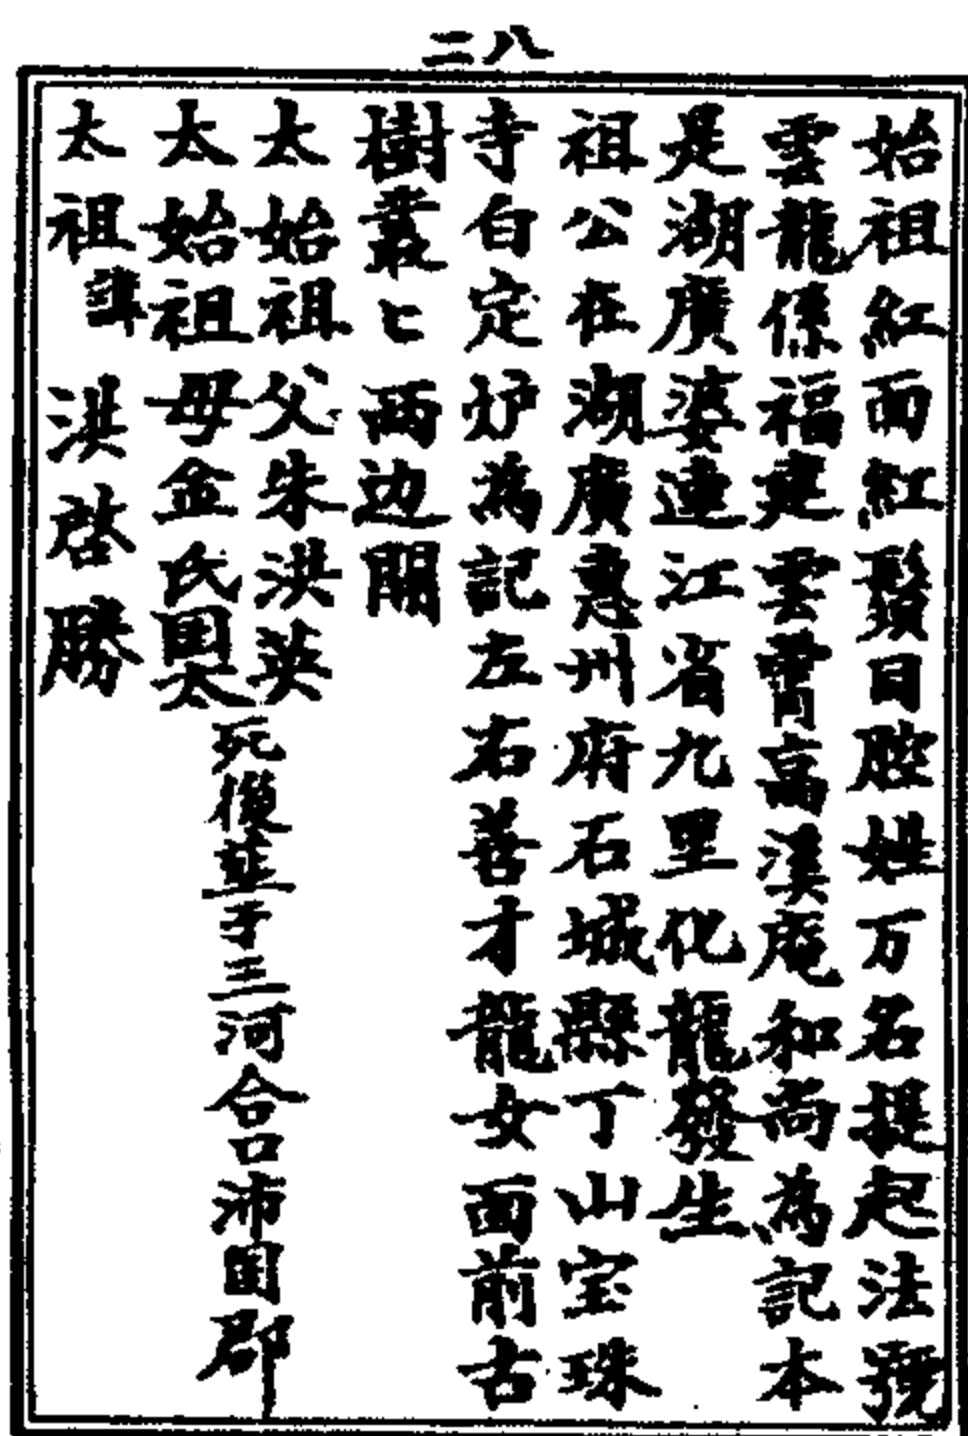 二八
始祖紅面紅鬚日腔姓万名提起法號
雲龍係福建雲霄高溪庵和尚為記本
是湖廣婆連江省九里化龍發生
祖公在湖廣惠州府石城縣丁山宝珠
寺白定炉為記左右善才龍女面前古
樹叢〻両边開
太始祖父朱洪英
太始祖母金氏国太
死後塟于三河合口沛国郡
太祖諱 洪啓勝